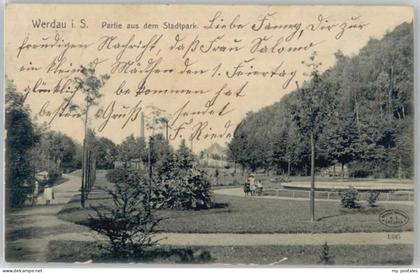 Werdau i. S. Partie aus dem Stadtpark.
Liebe Fanny, Dir zur
freudigen Nachricht, daß Frau Salomo
ein kleines Mädchen am 1. Feiertag
glücklich bekommen hat
Besten Gruß sendet
Fr. Riedel